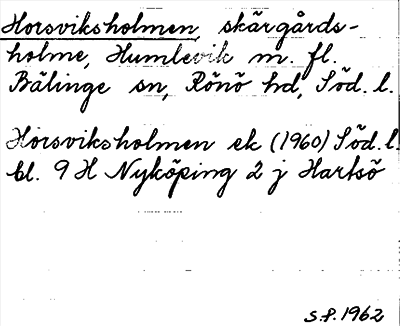 Horsviksholmen, skärgårds-
holme, Humlevik m. fl.
Bälinge sn, Rönö hd, Söd. l.
Horsviksholmen ek (1960) Söd. l.
bl. 9 H Nyköping 2 j Hartsö
S.F. 1962